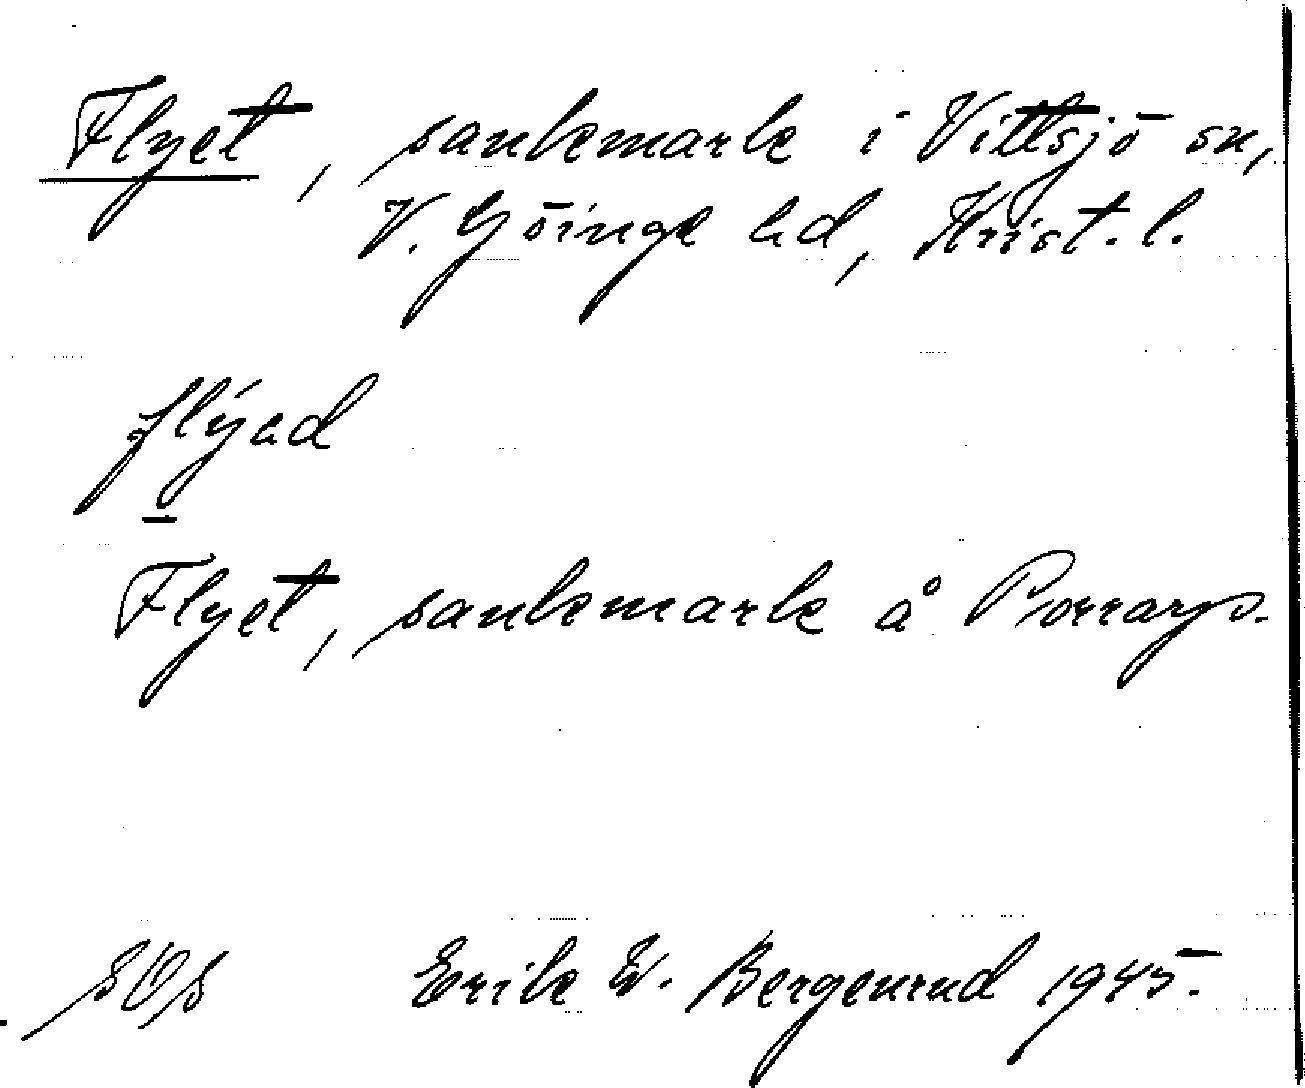 Flyet, sankmark i Vittsjö sn,
V. Göinge hd, Krist. l.
flýad
Flyet, sankmark å Porrarp.
Erik W. Bergenrud 1945.